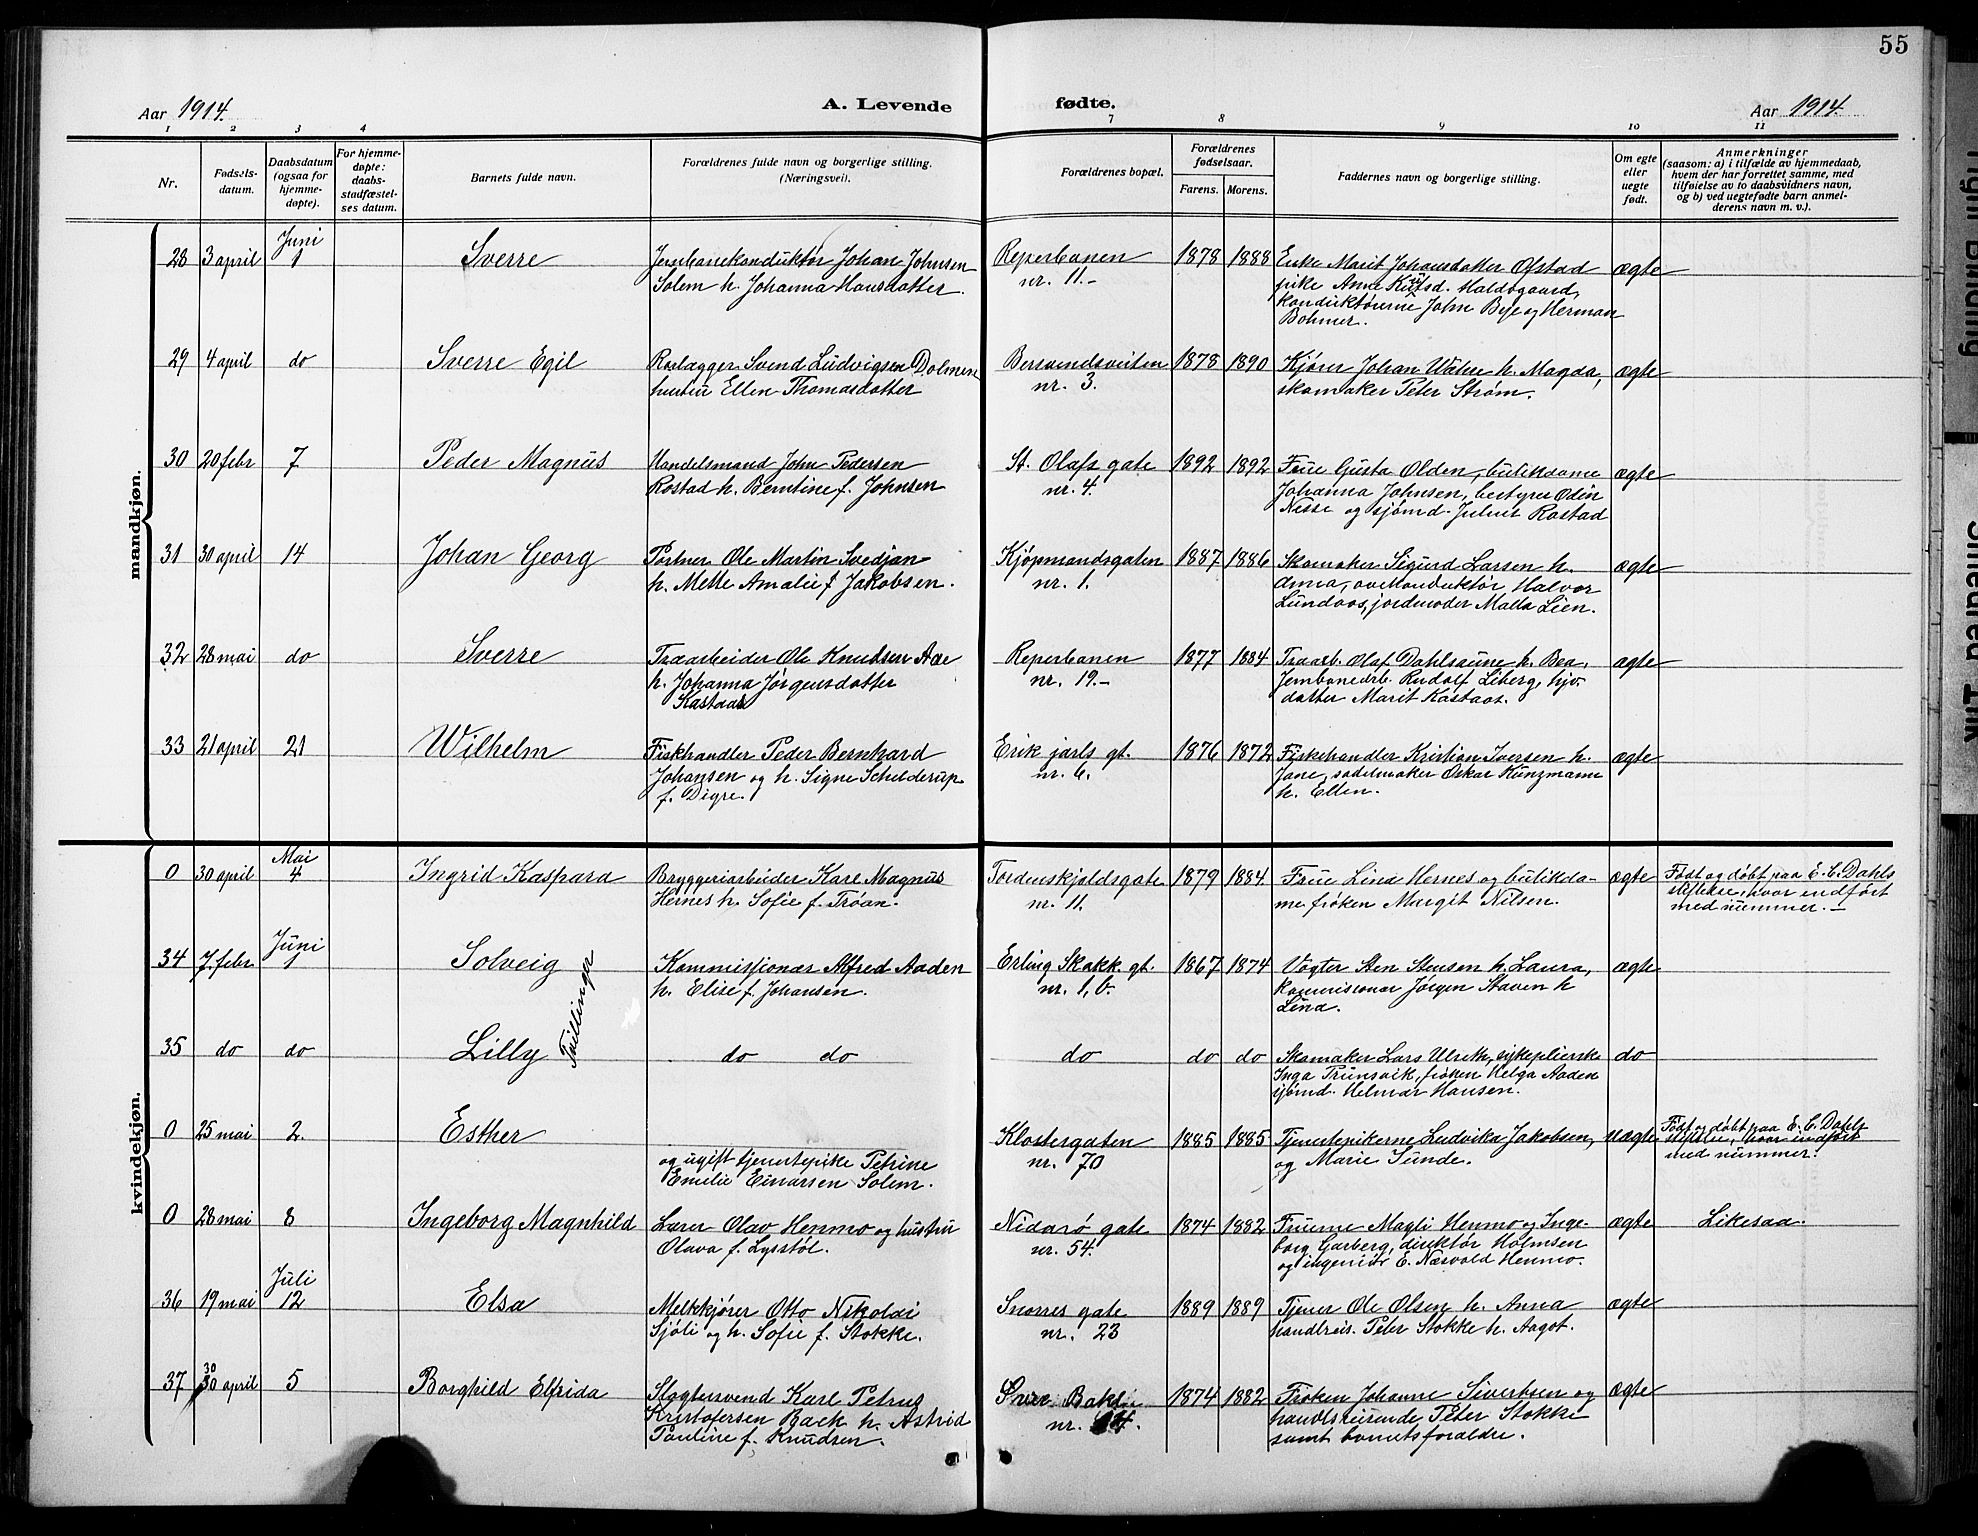 55
Aar 1914.
A. Levende
fødte.
Aar 1914.
1 2 3 4
7 8 9 10 11
Nr.
Fødsels-
datum.
Daabsdatum
(ogsaa for
hjemme-
døpte).
For hjemme-
døpte:
daabs-
stadfæstel-
ses datum.
Barnets fulde navn.
Forældrenes fulde navn og borgerlige stilling.
(Næringsvei).
Forældrenes bopæl.
Forældrenes
fødselsaar.
Farens. Morens.
Faddernes navn og borgerlige stilling.
Om egte
eller
uegte
født.
Anmerkninger
(saasom: a) i tilfælde av hjemmedaab,
hvem der har forrettet samme, med
tilføielse av to daabsvidners navn,
og b) ved uegtefødte barn anmel-
derens navn m. v.).
mandkjøn.
Juni
28 3 april 1 Sverre
Jernbanekonduktør Johan Johnsen
Solem h. Johanna Hansdatter.
Reperbanen
nr. 11.-
1878 1888
Enke Marit Johansdatter Ofstad
pike Anne Haldogaard,
konduktørerne John Bye og Herman
Bohmer.
ægte
29 4 april do Sverre Egil
Rørlægger Svend Ludvigsen Dolmen
hustru Ellen Thomasdatter
Bersvendsveiten
nr. 3.
1878 1890
Kjører Johan h. Magda,
skomaker Peter Strøm.
ægte
30 20 febr 7 Peder Magnus
Handelsmand John Pedersen
Rostad h. Berntine f. Johnsen
St. Olafs gate
nr. 4.
1892 1892
Frue Gusta Olden, butikdame
Johanna Johnsen, bestyrer Odin
Nesse og sjømd. Julius Rostad
ægte
31 30 april 14 Johan Georg
Portner Ole Martin Svedjan
h. Mette Amalie f. Jakobsen.
Kjøpmandsgaten
nr. 1.
1887 1886
Skomaker Sigurd Larsen h.
Anna, overkonduktør Halvor
Lundaas, jordmoder Malla Lien.
ægte
32 28 mai do Sverre
Træarbeider Ole Knudsen Aae
h. Johanna Jørgensdatter
Kastaas
Reperbanen
nr. 19.-
1877 1884
Træarb. Olaf Dahlsaune h. Bea,
Jernbanearb. Rudolf Liberg, hjv.
datter Marit Kastaas.
ægte
33 21 april 21 Wilhelm
Fiskhandler Peder Bernhard
Johansen og h. Signe Schilderup
f. Digre.
Erik jarls gt.
nr. 6.
1876 1872
Fiskehandler Kristian Iversen h.
Jane, sadelmaker Oskar Kunzmann
h. Ellen.
ægte
kvindekjøn.
Mai
0 30 april 4 Ingrid Kaspara
Bryggeriarbeider Karl Magnus
Hernes h. Sofie f. Trøan.
Tordenskjoldsgate
nr. 11.
1879 1884
Frue Lina Hernes og butikda-
me frøken Margit Nilsen.
ægte
Født og døbt paa E. C. Dahls
stiftelse, hvor indført
med nummer. –
Juni
34 7. febr 1 Solveig
Tvillinger
Kommissionær Alfred Aaden
h. Elise f. Johansen.
Erling Skakk. gt.
nr. 1, b.
1867 1874
Vogter Sten Stensen h. Laura,
kommissionær Jørgen Staven h
Lina.
ægte
35 do do Lilly
do do
do
do do
Skomaker Lars Ulrik, sykepleierske
Inga Trunsvik, frøken Helga Aaden
sjømd. Helmar Hansen.
do
0 25 mai 2. Esther
og ugift tjenestepike Petrine
Emelie Einarsen Solem.
Klostergaten
nr. 70
1885 1885
Tjenestepikerne Ludvika Jakobsen,
og Marie Sunde.
uægte
Født og døbt paa E. C. Dahls
stiftelse, hvor indført
med nummer.
0 28 mai 8 Ingeborg Magnhild
Lærer Olav Henmo og hustru
Olava f. Lysstøl.
Nidarø gate
nr. 54.
1874 1882
Fruerne Magli Henmo og Inge-
borg Garberg, direktør Holmsen
og ingeniør E. Næsvold Henmo.
ægte
Likesaa.
Juli
36 19 mai 12 Elsa
Melkkjører Otto Nikolai
Sjøli og h. Sofie f. Stokke.
Snorres gate
nr. 23
1889 1889
Tjener Ole Olsen h. Anna
handlreis. Peter Stokke h. Aagot.
ægte
30
37 30 april 5 Borghild Elfrida
Slagtersvend Karl Petrus
Kristofersen Back h. Astrid
Pauline f. Knudsen.
Bakli
nr. 14.
1874 1882
Frøken Johanne Sivertsen og
handlsreisende Peter Stokke
samt barnetsforældre.
ægte